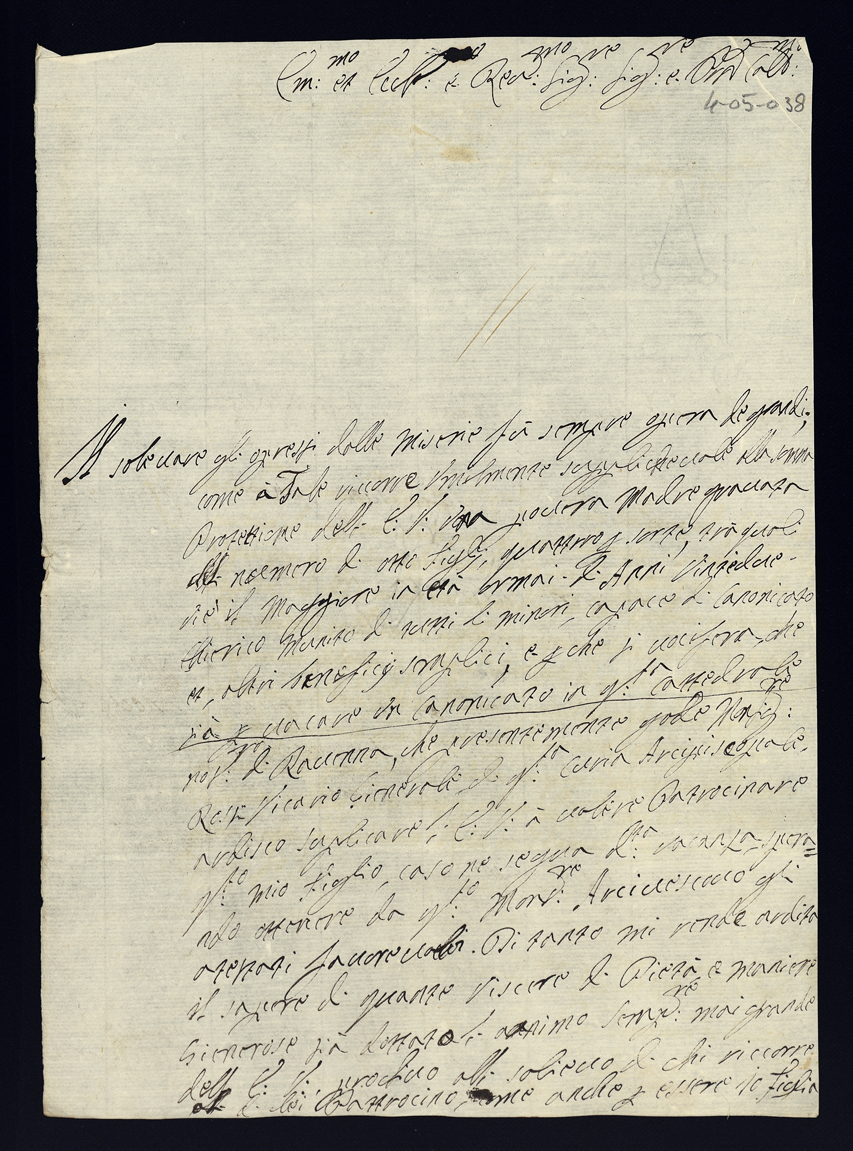 Em:mo et Ecc: e Rev:mo Sig:re Sig:re e Pron Col:mo
4-05-038
Il solevare gli opressi dalle Miserie fù sempre opera de grandi,
come à Tale ricorre Umilmente supplichevole alla somma
Protettione dell' E: V: una povera Madre gravata
dell' numero di otto Figli, quattro p sorte, trà quali
vi è il Maggiore in età ormai di Anni Vintedue
Chierico Munito di tutti li minori, capace di Canonicato
et, altri beneficij semplici, e p che si vocifera, che
sià p vacare un Canonicato in q:sta Cattedrale
di Ravenna, che presentemente gode Mons:re
Rasp Vicario Generale di q:sta Curia Arcivescovale,
ardisco suplicare l' E: V: à volere Patrocinare
q:sto mio Figlio, caso ne segua d:ta vacanza, spera=
ndo ottenere da q:sto Mons:re Arcivescovo gli
atestati favorevoli. Di tanto mi rende ardita
il sapere di quante viscere di Pietà e maniere
Generose sià dottato l' animo sempre mai grande
dell' E: V:, proclivo all' solievo di chi ricorre
al di lei Pattrocino, come anche p essere io Figlia